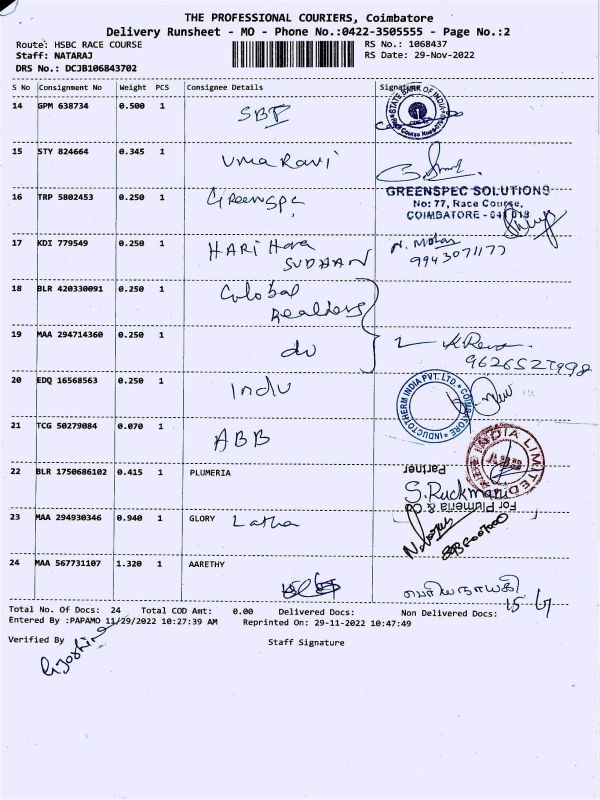 THE PROFESSIONAL COURIERS, Coimbatore
Delivery Runsheet - MO - Phone No.:0422-3505555 - Page No.:2
Route: HSBC RACE COURSE RS No.: 1068437
Staff: NATARAJ RS Date: 29-Nov-2022
DRS No.: DCJB106843702
S No Consignment No Weight PCS Consignee Details Signature
14 GPM 638734 0.500 1 SBI STATE BANK OF INDIA
15 STY 824664 0.345 1 Uma Ravi
16 TRP 5802453 0.250 1 Greenspc GREENSPEC SOLUTIONS
No: 77, Race Course,
COIMBATORE - 641 018
17 KDI 779549 0.250 1 HARI Hara N. Mohan
SUDHAN 9943071177
18 BLR 420330091 0.250 1 Global
Realders
19 MAA 294714360 0.250 1 do 2
9626527998
20 EDQ 16568563 0.250 1 Indu INDUCTOTHERM INDIA PVT. LTD. * COIMBATORE *
21 TCG 50279084 0.070 1 ABB INDIA LIMITED
22 BLR 1750686102 0.415 1 PLUMERIA Partner
S. Ruckmani
For Plumeria & Co
23 MAA 294930346 0.940 1 GLORY Latha
24 MAA 567731107 1.320 1 AARETHY
பெரியநாயகி
Total No. Of Docs: 24 Total COD Amt: 0.00 Delivered Docs: Non Delivered Docs:
Entered By :PAPAMO 11/29/2022 10:27:39 AM Reprinted On: 29-11-2022 10:47:49
Verified By Staff Signature